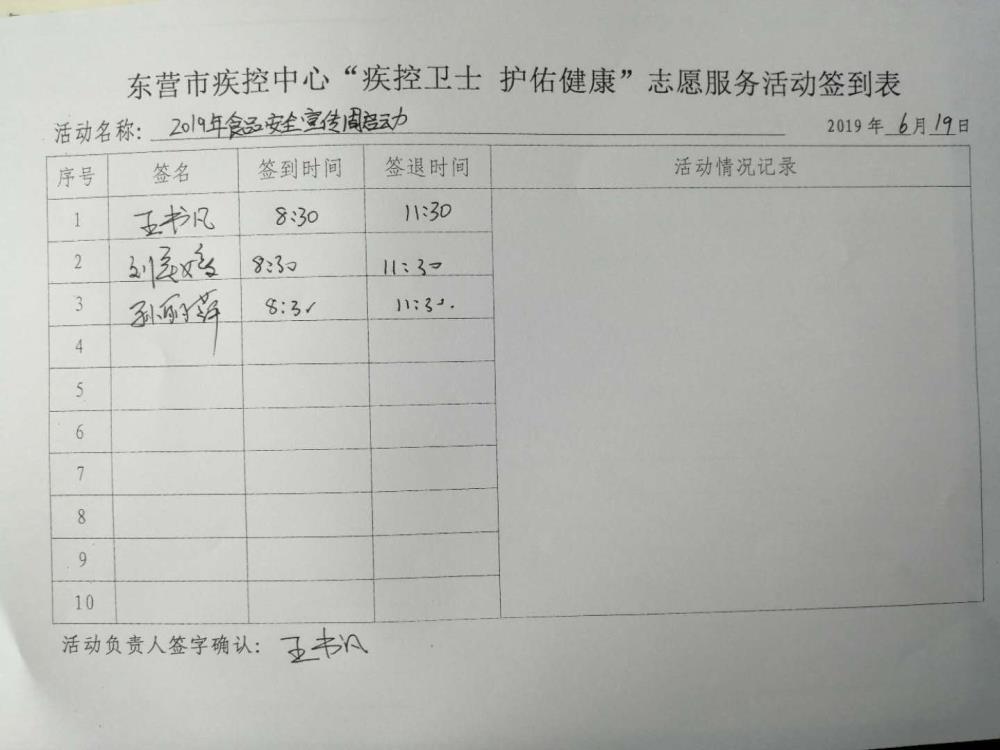 东营市疾控中心“疾控卫士 护佑健康”志愿服务活动签到表
活动名称: 2019年食品安全宣传周启动 2019年6月19日
序号 签名 签到时间 签退时间 活动情况记录
1 王书凡 8:30 11:30
2 刘 8:30 11:30
3 孙丽萍 8:30 11:30.
4
5
6
7
8
9
10
活动负责人签字确认: 王书凡